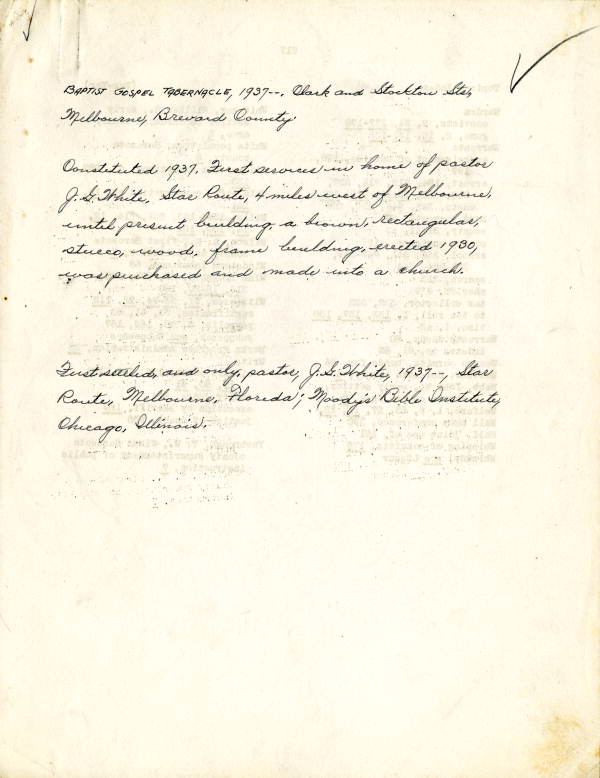 BAPTIST GOSPEL TABERNACLE, 1937--. Clark and Stockton Sts,
Melbourne, Brevard County
Constituted 1937. First services in home of pastor
J.G. White, Star Route, 4 miles west of Melbourne,
until present building, a brown, rectangular,
stucco, wood, frame building, erected 1930,
was purchased and made into a church.
First settled, and only, pastor, J.G. White, 1937--, Star
Route, Melbourne, Florida; Moody's Bible Institute,
Chicago, Illinois.